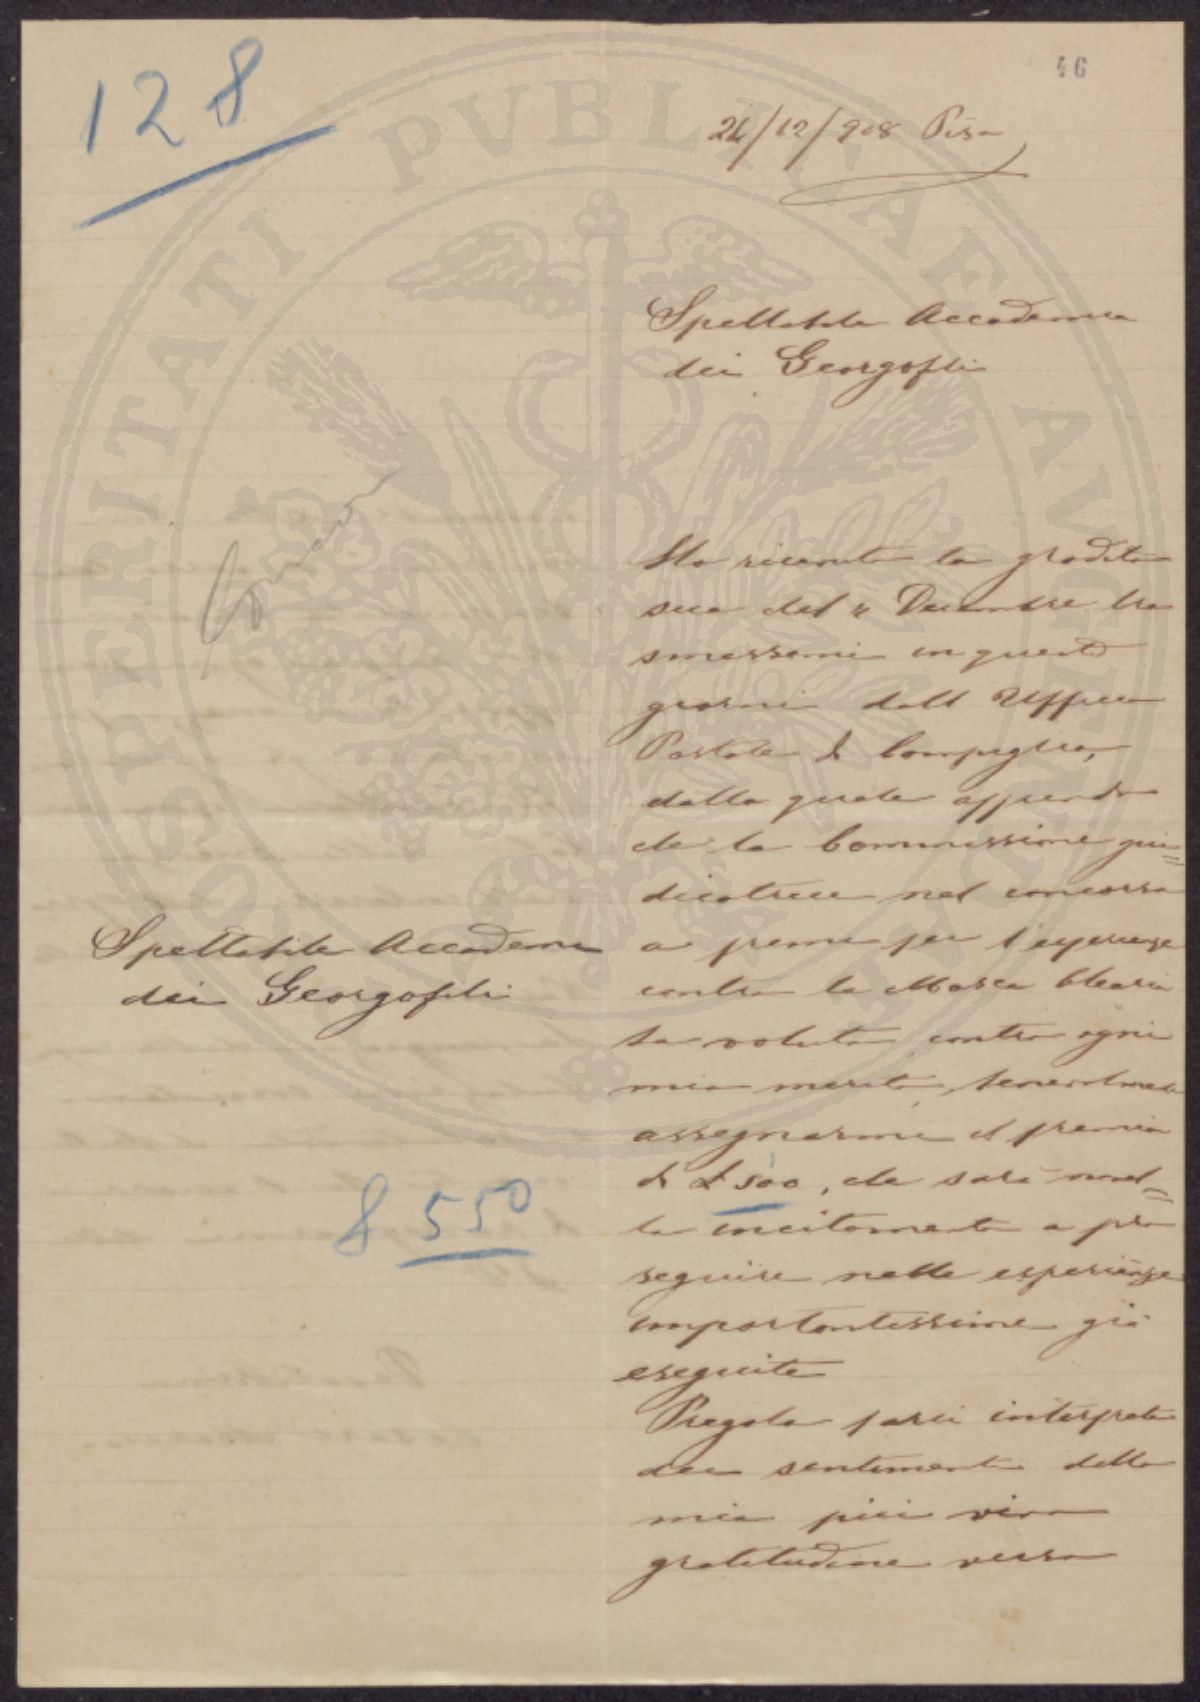 128
46
24/12/908 Pisa
Spettabile Accademia
dei Georgofili
Ho ricevuto la gradita
sua del 4 Decembre tra
smessami in questi
giorni dall Ufficio
Postale di Campiglia,
dalla quale apprendo
che la Commissione giu=
dicatrice nel concorso
a premi per l'esperienze
contro la Mosca Olearia
ha voluto, contro ogni
mio merito,
assegnarmi il premio
di £ 500, che sarà novel=
lo incitamento a pro
seguire nelle esperienze
importantissime già
eseguite
Pregola farsi interprete
dei sentimenti della
mia più viva
gratitudine verso
Spettabile Accademia
dei Georgofili
8 550
PROSPERITATI PVBLICAE AVGENDAE